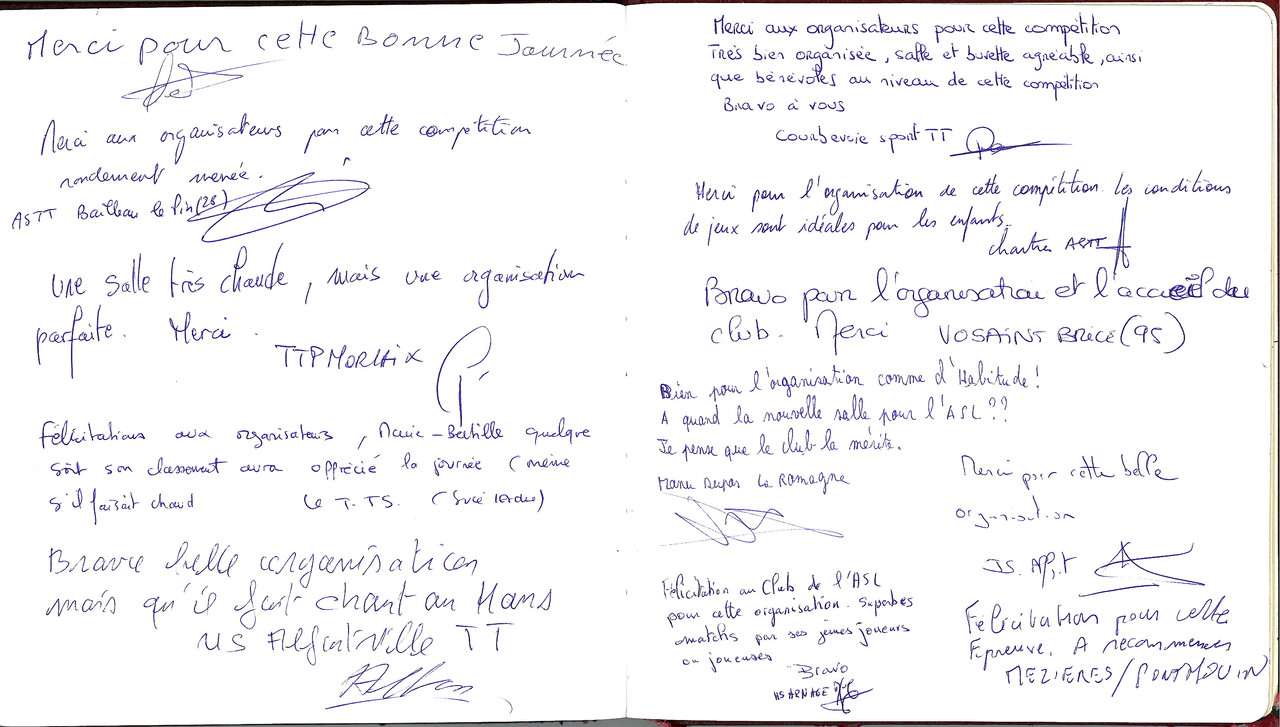 Merci pour cette BONNE Journée
Merci aux organisateurs pour cette compétition
rondement menée.
ASTT Bailleau le Pin (28)
Une salle très chaude, mais une organisation
parfaite. Merci.
TTP MORLAIX
Félicitations aux organisateurs, Marie-Bertille quelque
soit son classement aura apprécié la journée (même
s'il faisait chaud
Le T.TS.
Bravo belle organisation
mais qu'il fait chaut au Mans
US Alfortville TT
Merci aux organisateurs pour cette compétition
Très bien organisée, salle et buvette agréable, ainsi
que bénévoles au niveau de cette compétition
Bravo à vous
Courbevoie sport TT
Merci pour l'organisation de cette compétition. Les conditions
de jeux sont idéales pour les enfants.
Chartres ASTT
Bravo pour l'organisation et l'accueil du
club. Merci VO SAINT BRICE (95)
Bien pour l'organisation comme d'Habitude !
A quand la nouvelle salle pour l'ASL ??
Je pense que le club la mérite.
Manu Dupas La Romagne
Merci pour cette belle
organisation
JS.
Félicitation au Club de l'ASL
pour cette organisation. Superbes
matchs par ses jeunes joueurs
ou joueuses
Bravo
US ARNAGE
Félicitation pour cette
Epreuve. A recommencer
MEZIERES/PONTHOUIN